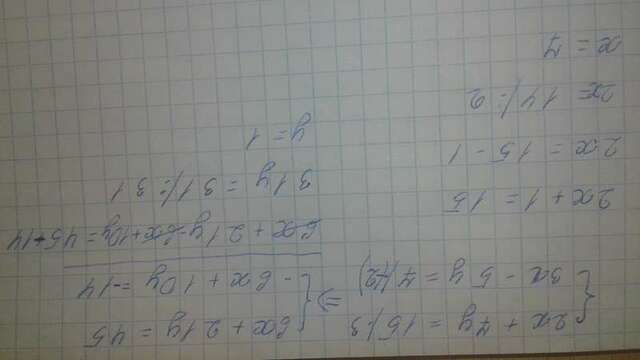 { 2x + 7y = 15 /3
{ 3x - 5y = 7 /(-2)
⇒
{ 6x + 21y = 45
{ -6x + 10y = -14
6x + 21y - 6x + 10y = 45 - 14
31y = 31 /: 31
y = 1
2x + 1 = 15
2x = 15 - 1
2x = 14 /: 2
x = 7